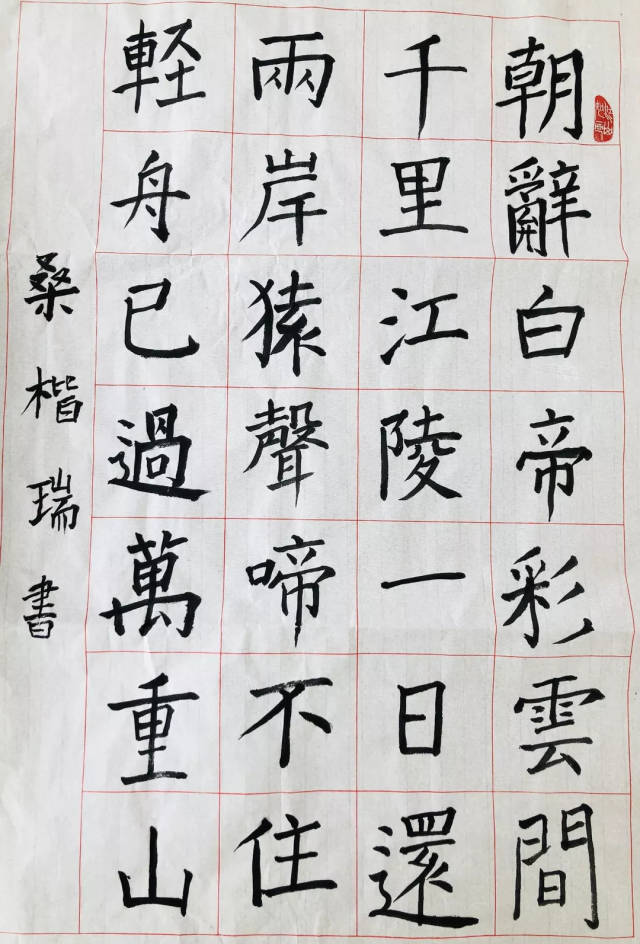 朝辭白帝彩雲間
千里江陵一日還
兩岸猿聲啼不住
軽舟已過萬重山
桑楷瑞書